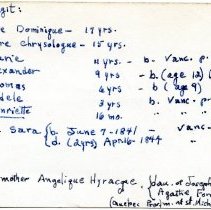 git:
e Dominique - 17 yrs.
re Chrysologue - 15 yrs.
arie 11 yrs. - b. Vanc. p.
exander 9 yrs - b. (age 12)
omas 6 yrs - b. (age 9)
dele 3 yrs. - b. Vanc. p.
enriette 16 mo.
Sara { b. June 7-1841
{ d. (2 yrs) Apr 16-1844
mother Angelique Hyracque. { dau. of Joseph
Agathe For
(Quebec Prov.) m. at St. Mich